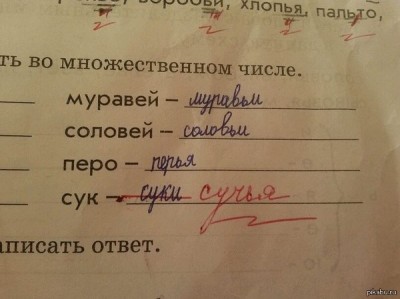 воробьи, хлопья, пальто,
ть во множественном числе.
муравей – муравьи
соловей – соловьи
перо – перья
сук – суки сучья
аписать ответ.
pikabu.ru